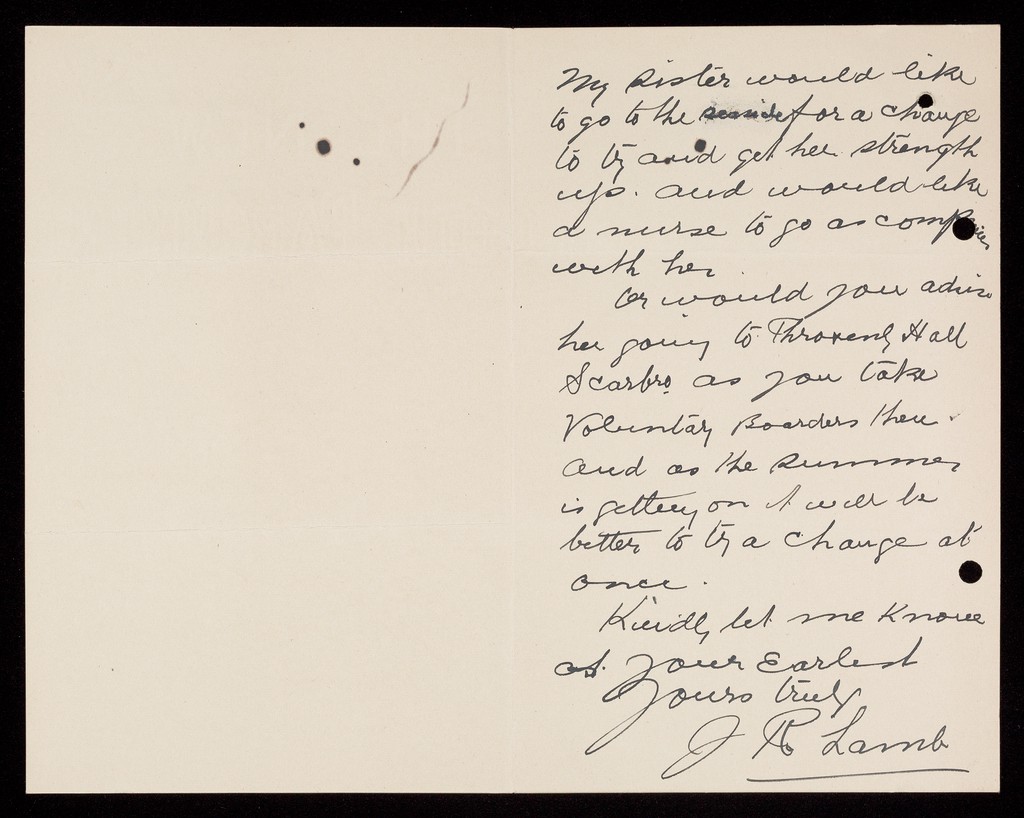 My sister would like
to go to the seaside for a change
to try and get her strength
up. and would like
a nurse to go as
with her.
Or would you advise
her going to Throxenby Hall
Scarbro, as you take
Voluntary Boarders there.
and as the summer
is getting on it will be
better to try a change at
once.
Kindly let me know
at your Earliest
yours truly
J R Lamb